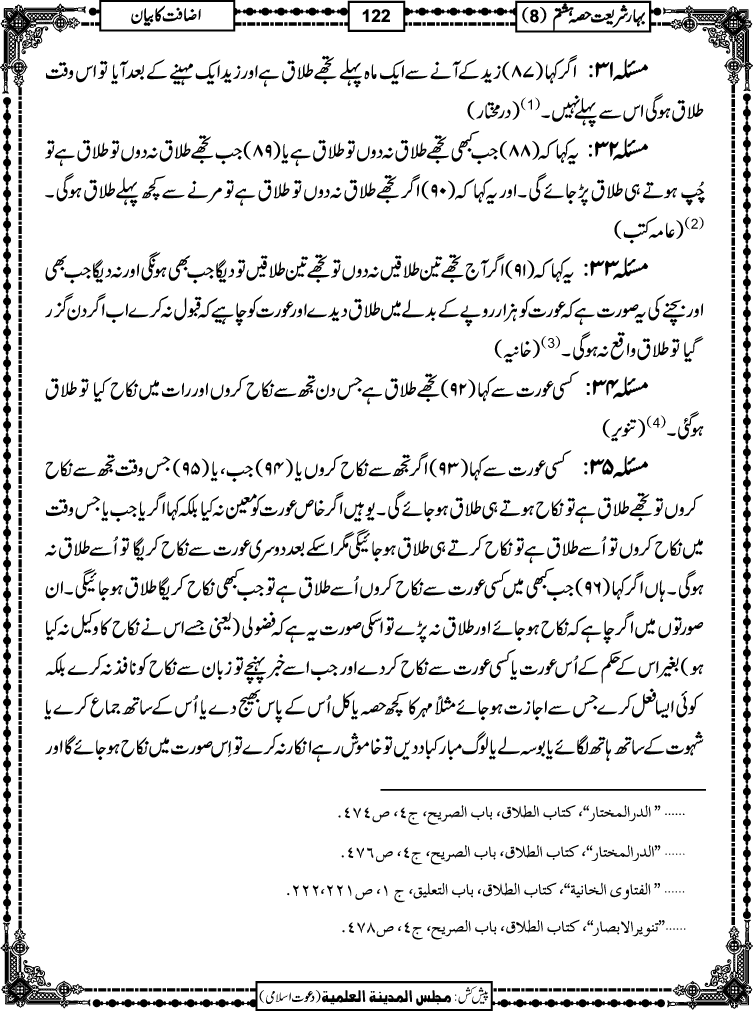 بہار شریعت حصہ ہشتم (8)
122
اضافت کا بیان
مسئلہ ۳۱: اگر کہا (۸۷) زید کے آنے سے ایک ماہ پہلے تجھے طلاق ہے اور زید ایک مہینے کے بعد آیا تو اس وقت
طلاق ہوگی اس سے پہلے نہیں۔(1) (درمختار)
مسئلہ ۳۲: یہ کہا کہ (۸۸) جب کبھی تجھے طلاق نہ دوں تو طلاق ہے یا (۸۹) جب تجھے طلاق نہ دوں تو طلاق ہے تو
چُپ ہوتے ہی طلاق پڑ جائے گی۔ اور یہ کہا کہ (۹۰) اگر تجھے طلاق نہ دوں تو طلاق ہے تو مرنے سے کچھ پہلے طلاق ہوگی۔
(2) (عامہ کتب)
مسئلہ ۳۳: یہ کہا کہ (۹۱) اگر آج تجھے تین طلاقیں نہ دوں تو تجھے تین طلاقیں تو دیگا جب بھی ہونگی اور نہ دیگا جب بھی
اور بچنے کی یہ صورت ہے کہ عورت کو ہزار روپے کے بدلے میں طلاق دیدے اور عورت کو چاہیے کہ قبول نہ کرے اب اگر دن گزر
گیا تو طلاق واقع نہ ہوگی۔(3) (خانیہ)
مسئلہ ۳۴: کسی عورت سے کہا (۹۲) تجھے طلاق ہے جس دن تجھ سے نکاح کروں اور رات میں نکاح کیا تو طلاق
ہوگئی۔(4) (تنویر)
مسئلہ ۳۵: کسی عورت سے کہا (۹۳) اگر تجھ سے نکاح کروں یا (۹۴) جب، یا (۹۵) جس وقت تجھ سے نکاح
کروں تو تجھے طلاق ہے تو نکاح ہوتے ہی طلاق ہو جائے گی۔ یوہیں اگر خاص عورت کو معین نہ کیا بلکہ کہا اگر یا جب یا جس وقت
میں نکاح کروں تو اُسے طلاق ہے تو نکاح کرتے ہی طلاق ہو جائیگی مگر اسکے بعد دوسری عورت سے نکاح کریگا تو اُسے طلاق نہ
ہوگی۔ ہاں اگر کہا (۹۶) جب کبھی میں کسی عورت سے نکاح کروں اُسے طلاق ہے تو جب کبھی نکاح کریگا طلاق ہو جائیگی۔ ان
صورتوں میں اگر چاہے کہ نکاح ہو جائے اور طلاق نہ پڑے تو اسکی صورت یہ ہے کہ فضولی (یعنی جسے اس نے نکاح کا وکیل نہ کیا
ہو) بغیر اس کے حکم کے اُس عورت یا کسی عورت سے نکاح کردے اور جب اسے خبر پہنچے تو زبان سے نکاح کو نافذ نہ کرے بلکہ
کوئی ایسا فعل کرے جس سے اجازت ہو جائے مثلاً مہر کا کچھ حصہ یا کل اُس کے پاس بھیج دے یا اُس کے ساتھ جماع کرے یا
شہوت کے ساتھ ہاتھ لگائے یا بوسہ لے یا لوگ مبارکباد دیں تو خاموش رہے انکار نہ کرے تو اِس صورت میں نکاح ہو جائے گا اور
...... ” الدرالمختار“، کتاب الطلاق، باب الصریح، ج٤، ص٤٧٤.
...... ”الدرالمختار“، کتاب الطلاق، باب الصریح، ج٤، ص٤٧٦.
...... ” الفتاوی الخانیة“، کتاب الطلاق، باب التعلیق، ج ١، ص٢٢٢،٢٢١.
......”تنویرالابصار“، کتاب الطلاق، باب الصریح، ج٤، ص٤٧٨.
پیش کش: مجلس المدینة العلمیة (دعوت اسلامی)